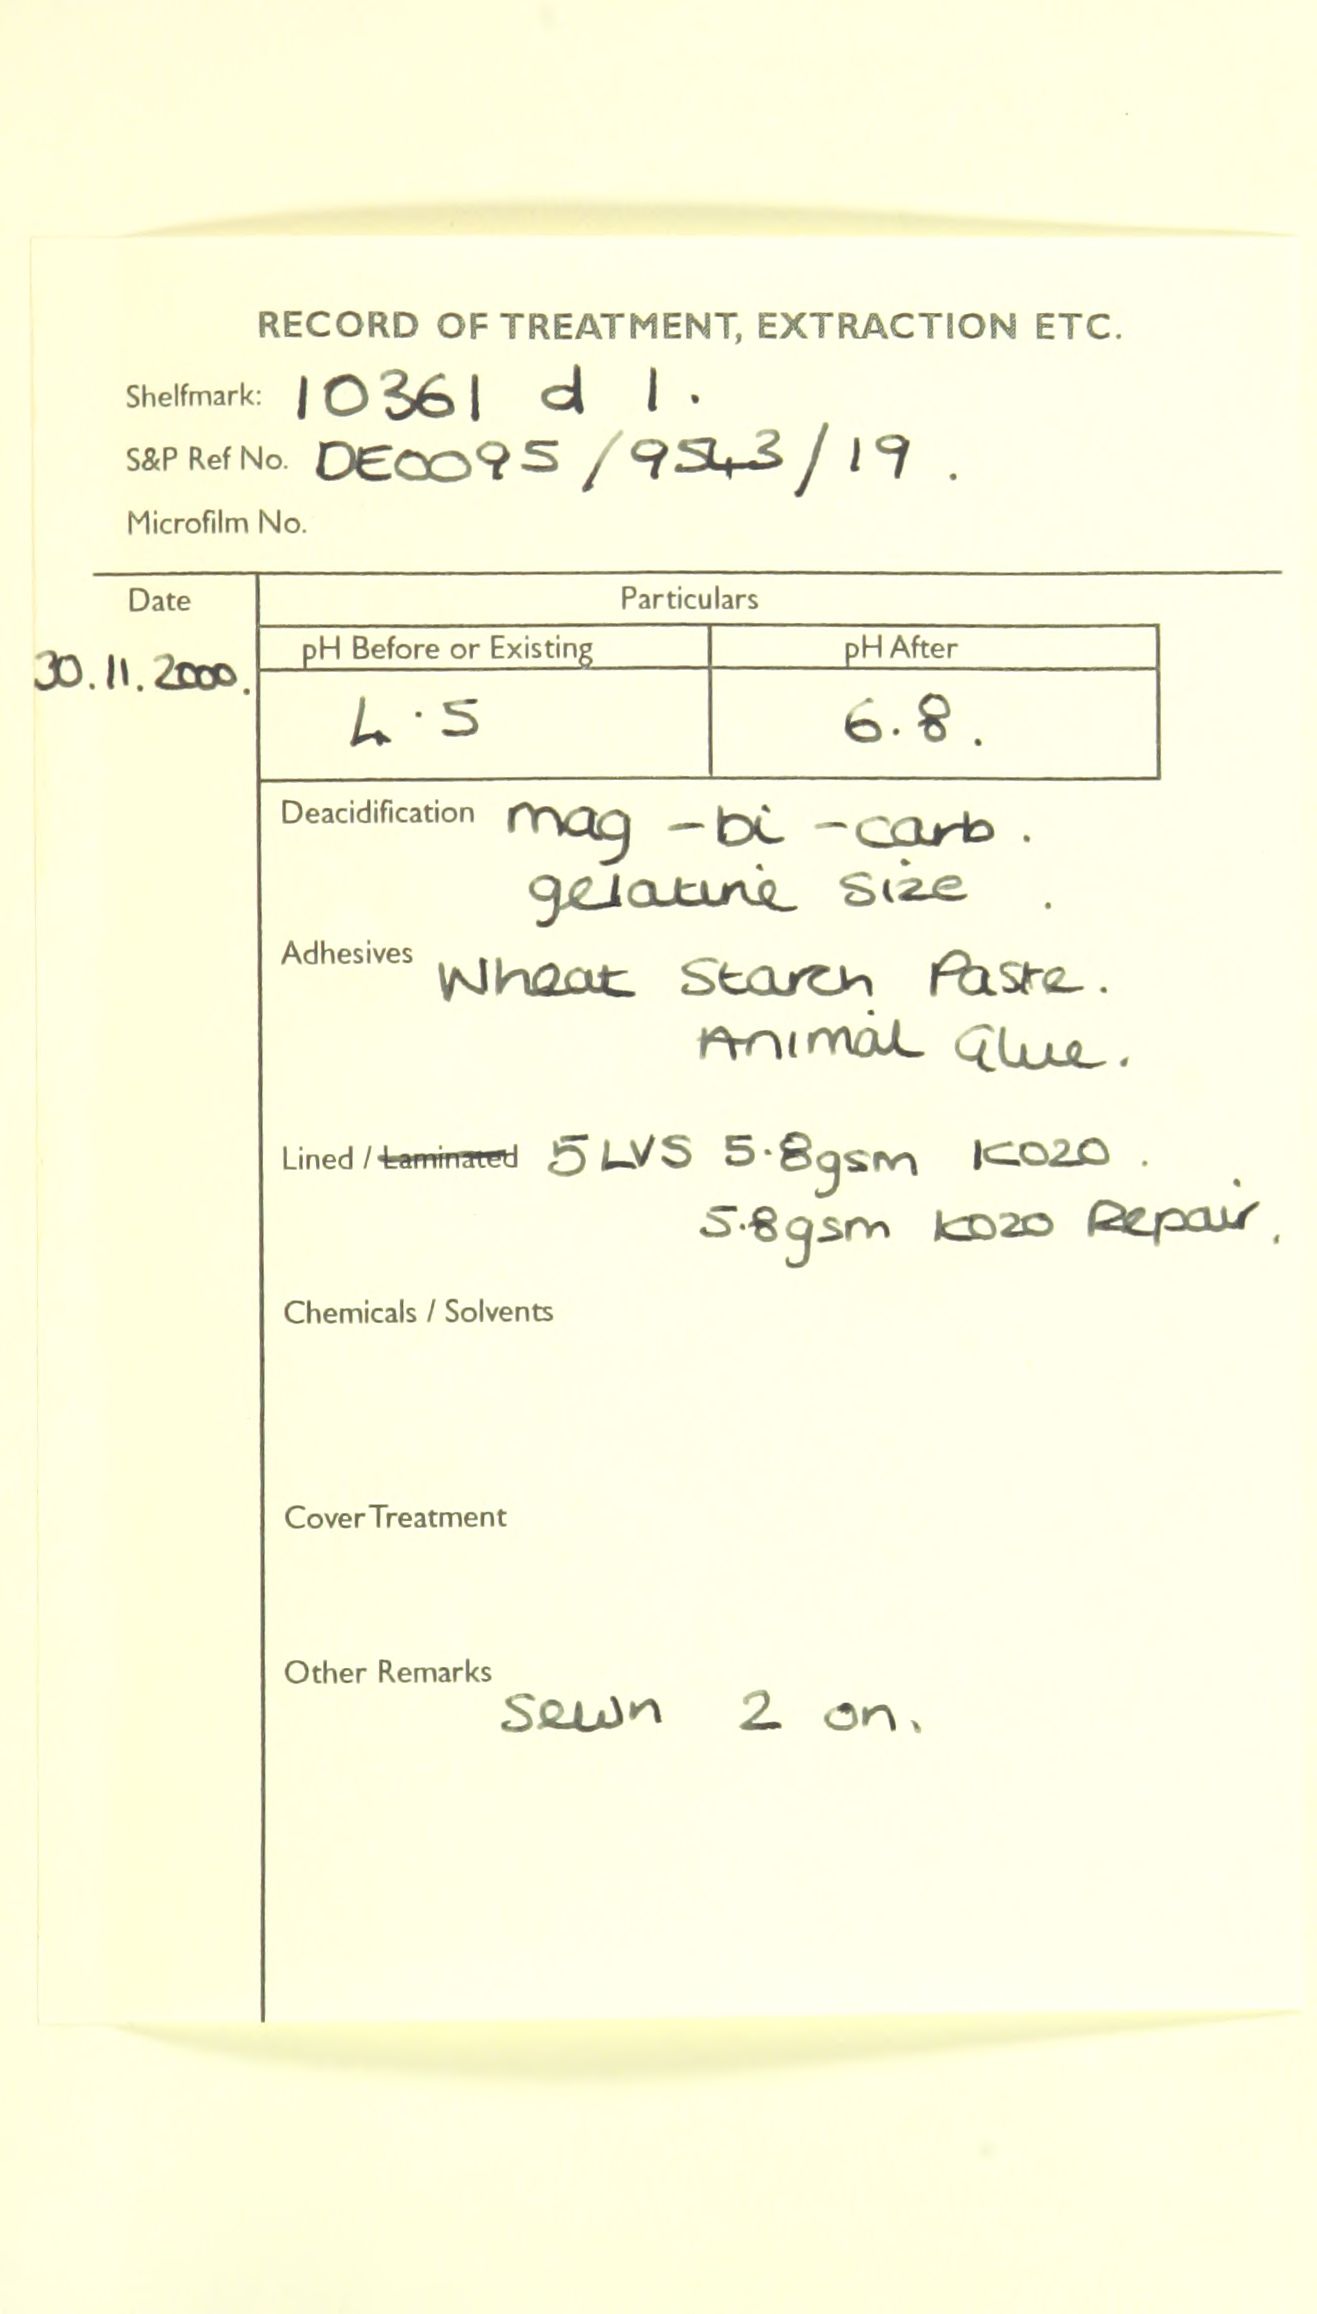 RECORD OF TREATMENT, EXTRACTION ETC.
Shelfmark: 10361 d 1.
S&P Ref No. DE0095/9543/19.
Microfilm No.
Date Particulars
pH Before or Existing pH After
30.11.2000.
4.5 6.8.
Deacidification mag-bi-carb.
gelatine size.
Adhesives Wheat Starch Paste.
Animal Glue.
Lined / Laminated 5 LVS 5.8gsm K020.
5.8gsm K020 Repair.
Chemicals / Solvents
Cover Treatment
Other Remarks
Sewn 2 on.